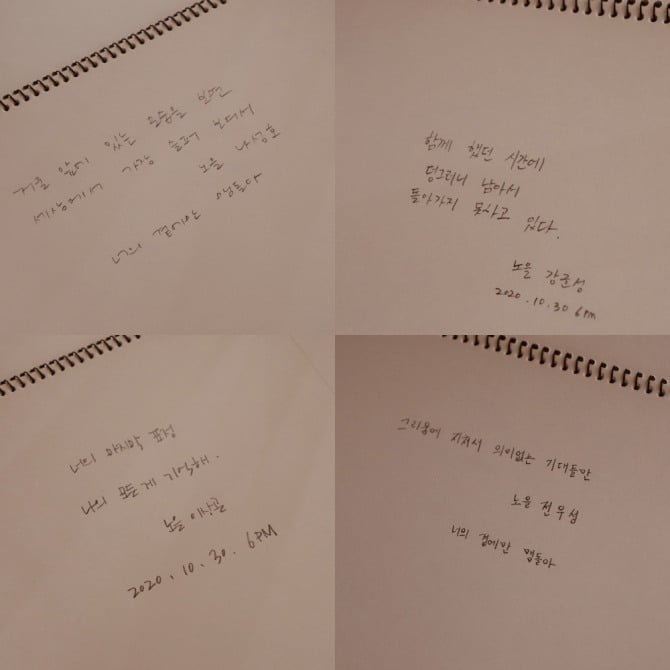 거울 앞에 있는 모습을 보면
세상에서 가장 슬퍼 보여서
노을 나성호
너의 곁에만 맴돌아
함께 했던 시간에
덩그러니 남아서
돌아가지 못하고 있다.
노을 강균성
2020.10.30 6pm
너의 마지막 표정
나의 모든 게 기억해.
노을 이상곤
2020. 10. 30. 6PM
그리움에 지쳐서 의미없는 기대들만
노을 전우성
너의 곁에만 맴돌아